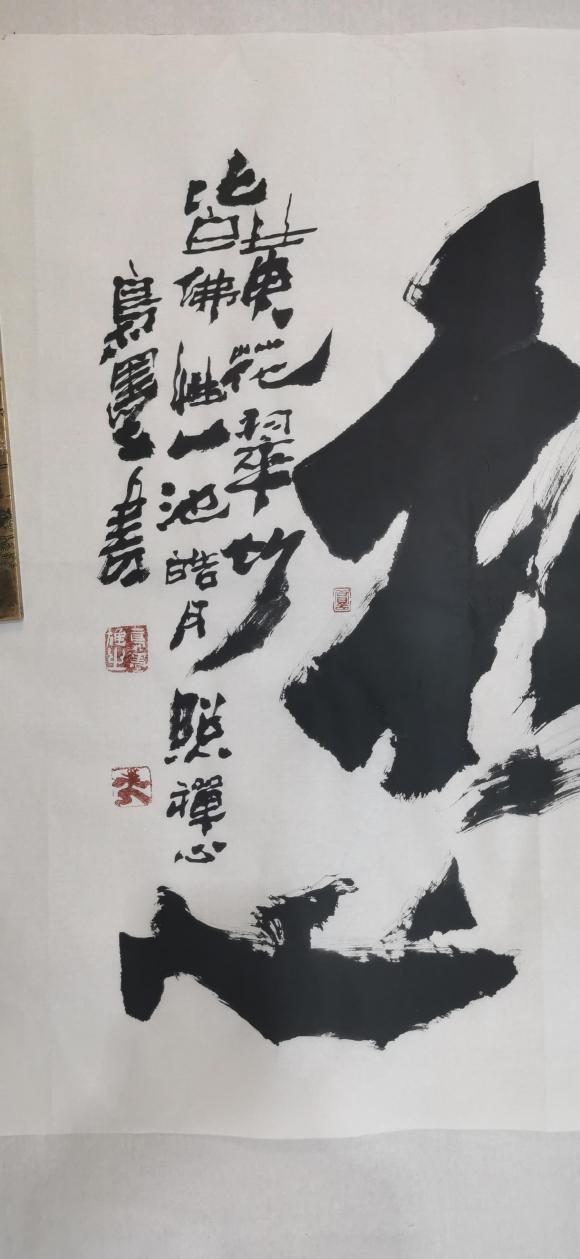 心
黄花翠竹
皆佛性一池皓月照禪心
墨書